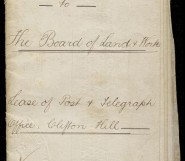 to
The Board of Land & Works
Lease of Post & Telegraph
Office Clifton Hill